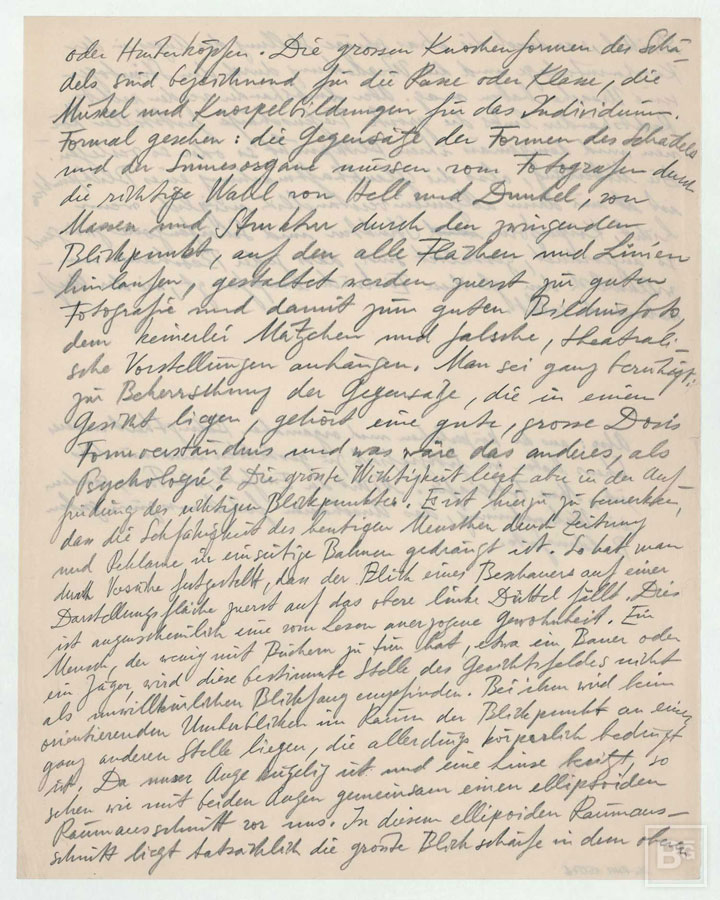 oder Hinterköpfen. Die grossen Knochenformen des Schä-
dels sind bezeichnend für die Rasse oder Klasse, die
Muskel und Knorpelbildungen für das Individuum.
Formal gesehen: die Gegensätze der Formen des Schädels
und der Sinnesorgane müssen vom Fotografen durch
die richtige Wahl von Hell und Dunkel, von
Massen und Struktur durch den zwingenden
Blickpunkt, auf den alle Flächen und Linien
hinlaufen, gestaltet werden zuerst zur guten
Fotografie und damit zum guten Bildnisfoto,
dem keinerlei Mätzchen und falsche, theatrali-
sche Vorstellungen anhängen. Man sei ganz beruhigt:
zur Beherrschung der Gegensätze, die in einem
Gesicht liegen, gehört eine gute, grosse Dosis
Formverständnis und was wäre das anderes, als
Psychologie? Die grösste Wichtigkeit liegt aber in der Auf-
findung des richtigen Blickpunktes. Es ist hierzu zu bemerken,
dass die Sehfähigkeit des heutigen Menschen durch Zeitung
und Reklame in einseitige Bahnen gedrängt ist. So hat man
durch Versuche festgestellt, dass der Blick eines Beschauers auf einer
Darstellungsfläche zuerst auf das obere linke Drittel fällt. Dies
ist augenscheinlich eine vom Lesen anerzogene Gewohnheit. Ein
Mensch, der wenig mit Büchern zu tun hat, etwa ein Bauer oder
ein Jäger, wird diese bestimmte Stelle des Gesichtsfeldes nicht
als unwillkürlichen Blickfang empfinden. Bei ihm wird beim
orientierenden Umherblicken im Raum der Blickpunkt an einer
ganz anderen Stelle liegen, die allerdings körperlich bedingt
ist. Da unser Auge kugelig ist und eine Linse besitzt, so
sehen wir mit beiden Augen gemeinsam einen ellipsoiden
Raumausschnitt vor uns. In diesem ellipsoiden Raumaus-
schnitt liegt tatsächlich die grösste Blickschärfe in dem oberen
BG